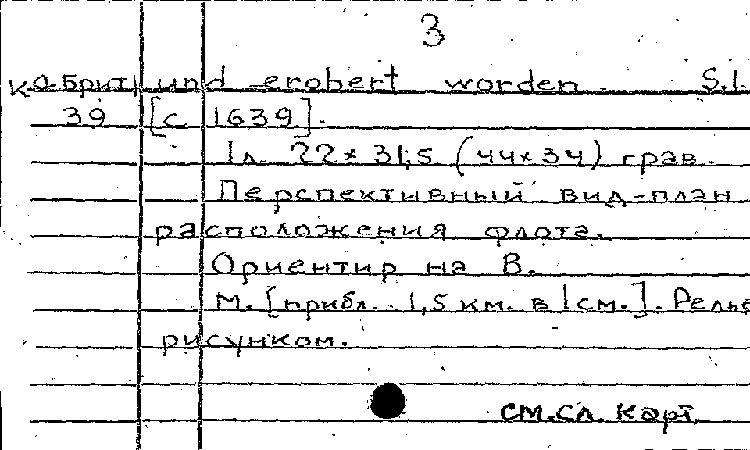 3
К-О-Брит und erobert worden. S.l.
39 [с 1639].
1 л. 22×31,5 (44×34) грав.
Перспективный вид-план
расположения флота.
Ориентир на В.
М. [прибл. 1,5 км. в 1 см.]. Релье
рисунком.
см. сл. карт